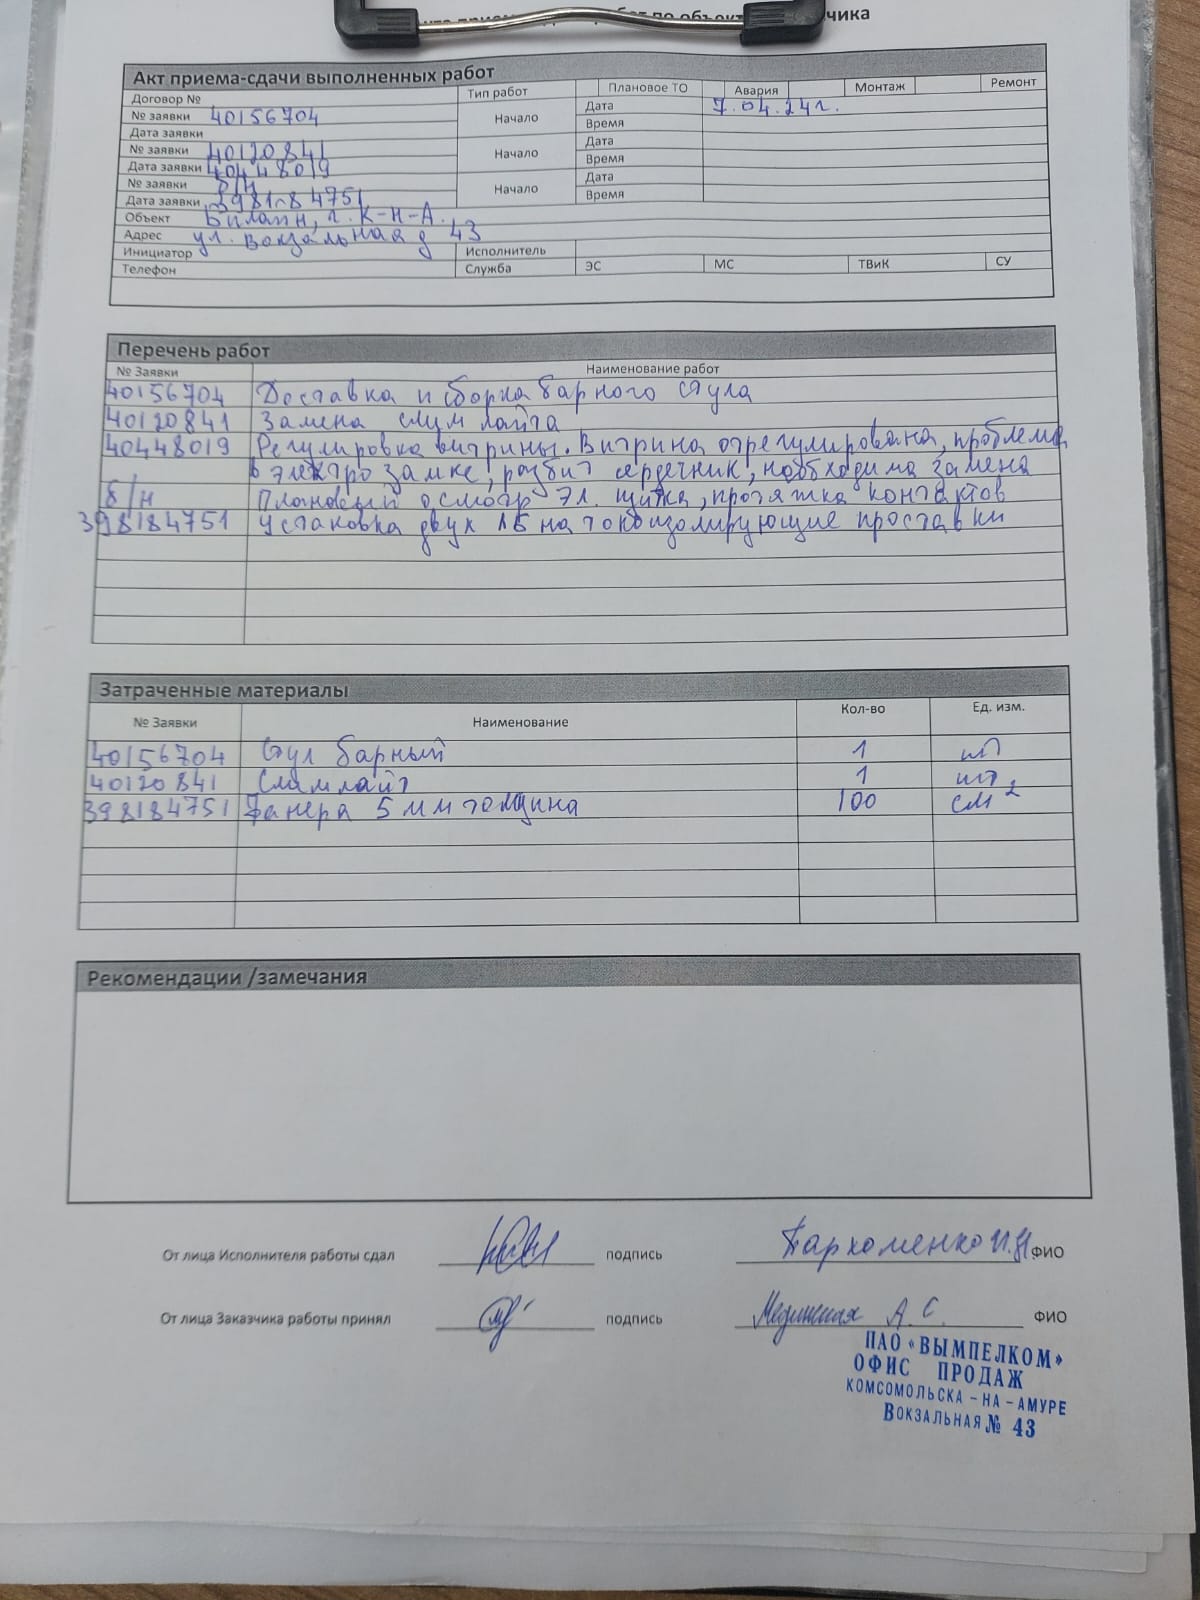 чика
Акт приема-сдачи выполненных работ
Договор № Тип работ Плановое ТО Авария Монтаж Ремонт
№ заявки 40156704 Начало Дата 7.04.24г.
Дата заявки Время
№ заявки 40120841 Начало Дата
Дата заявки 40448019 Время
№ заявки б/н Начало Дата
Дата заявки Время
Объект Билайн, г. К-н-А.
Адрес ул. Вокзальная д 43
Инициатор Исполнитель
Телефон Служба ЭС МС ТВиК СУ
Перечень работ
№ Заявки Наименование работ
40156704 Доставка и сборка барного стула
40120841 Замена слим лайта
40448019 Регулировка витрины. Витрина отрегулирована, проблема
в электро замке, разбит сердечник, необходима замена
б/н Плановый осмотр эл. щитка, протяжка контактов
398184751 Установка двух на токоизолирующие проставки
Затраченные материалы
№ Заявки Наименование Кол-во Ед. изм.
40156704 Стул барный 1 шт
40120841 Слим лайт 1 шт
398184751 Фанера 5 мм толщина 100 см²
Рекомендации /замечания
От лица Исполнителя работы сдал подпись Пархоменко И.Н. ФИО
От лица Заказчика работы принял подпись А. С. ФИО
ПАО «ВЫМПЕЛКОМ»
ОФИС ПРОДАЖ
КОМСОМОЛЬСКА-НА-АМУРЕ
ВОКЗАЛЬНАЯ № 43